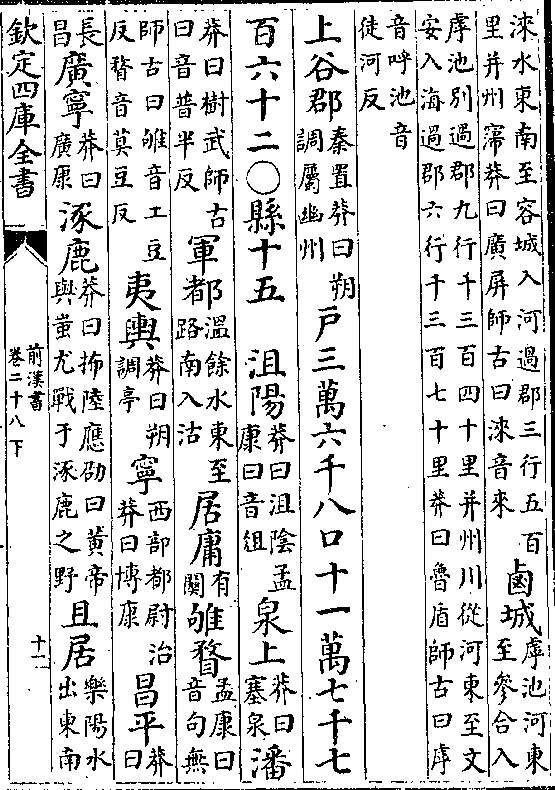 淶水東南至容城入河過郡三行五百
里并州寖莽曰廣屏師古曰淶音來
鹵城
虖池河東
至參合入
虖池別過郡九行千三百四十里并州川從河東至文
安入海過郡六行千三百七十里莽曰魯盾師古曰虖
音呼池音
徒河反
上谷郡
秦置莽曰朔
調屬幽州
戸三萬六千八口十一萬七千七
百六十二〇縣十五
沮陽
莽曰沮陰孟
康曰音俎
泉上
莽曰
塞泉
潘
莽曰樹武師古
曰音普半反
軍都
溫餘水東至
路南入沽
居庸
有
關
雊瞀
孟康曰
音句無
師古曰雊音工豆
反瞀音莫豆反
夷輿
莽曰朔
調亭
寧
西部都尉治
莽曰博康
昌平
莽
曰
長
昌
廣寧
莽曰
廣康
涿鹿
莽曰抪陸應劭曰黃帝
與蚩尤戰于涿鹿之野
且居
樂陽水
出東南
欽定四庫全書
前漢書
卷二十八下
十一